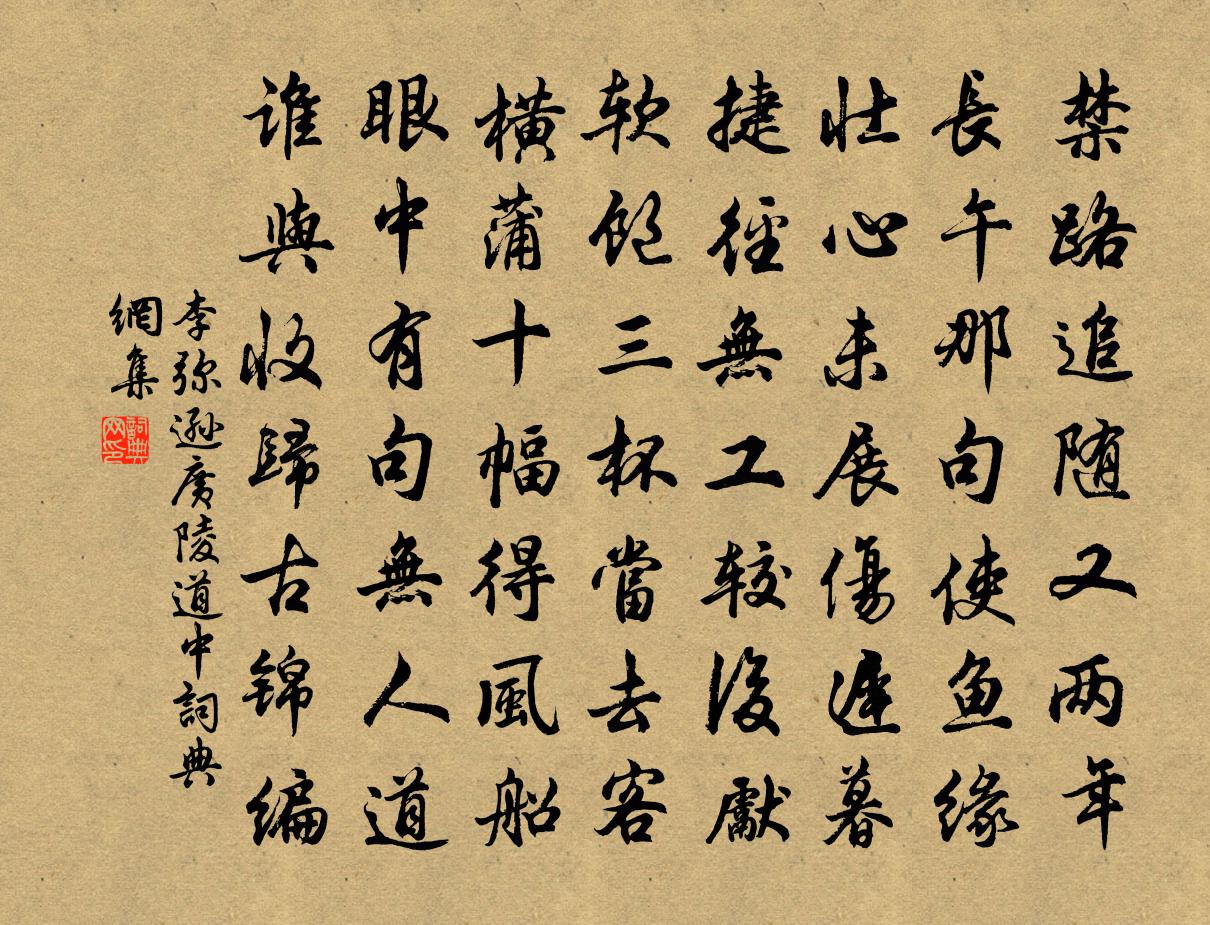 禁路追随又两年
長午那句使鱼缘
壮心未展傷遲暮
捷徑無工較後獻
软飽三杯當去客
横蒲十幅得風船
眼中有句無人道
谁與收歸古锦编
李弥遜廣陵道中詞典
網集
詞典網印